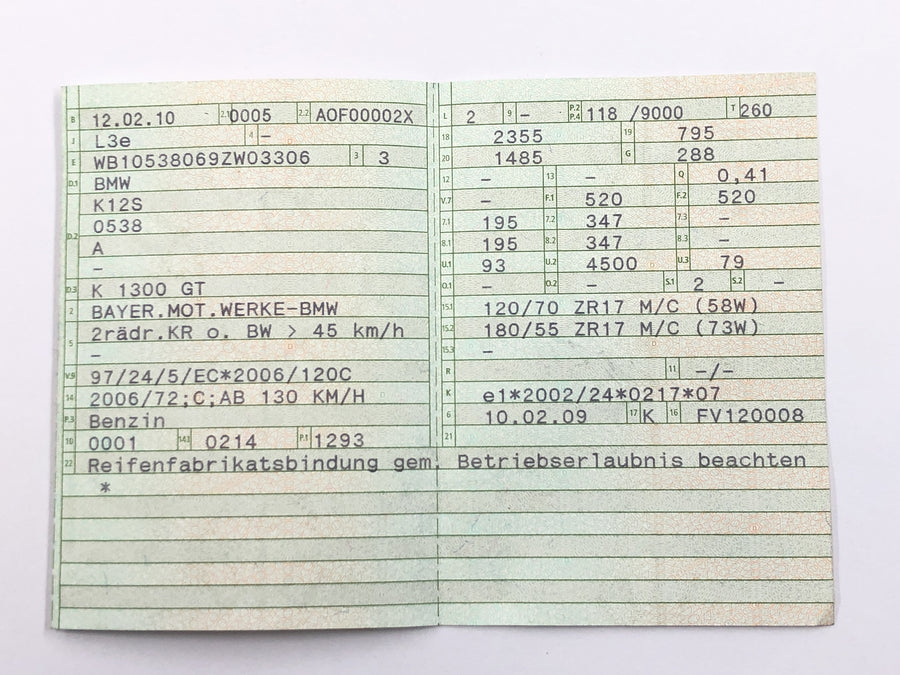 B 12.02.10 2.1 0005 2.2 AOF00002X
J L3e 4 –
E WB10538069ZW03306 3 3
D.1 BMW
K12S
0538
D.2 A
–
D.3 K 1300 GT
2 BAYER.MOT.WERKE-BMW
5 2rädr.KR o. BW > 45 km/h
–
V.9 97/24/5/EC*2006/120C
14 2006/72;C;AB 130 KM/H
P.3 Benzin
10 0001 14.1 0214 P.1 1293
22 Reifenfabrikatsbindung gem. Betriebserlaubnis beachten
*
L 2 9 – P.2 P.4 118 /9000 T 260
18 2355 19 795
20 1485 G 288
12 – 13 – Q 0,41
V.7 – F.1 520 F.2 520
7.1 195 7.2 347 7.3 –
8.1 195 8.2 347 8.3 –
U.1 93 U.2 4500 U.3 79
O.1 – O.2 – S.1 2 S.2 –
15.1 120/70 ZR17 M/C (58W)
15.2 180/55 ZR17 M/C (73W)
15.3 –
R 11 –/–
K e1*2002/24*0217*07
6 10.02.09 17 K 16 FV120008
21